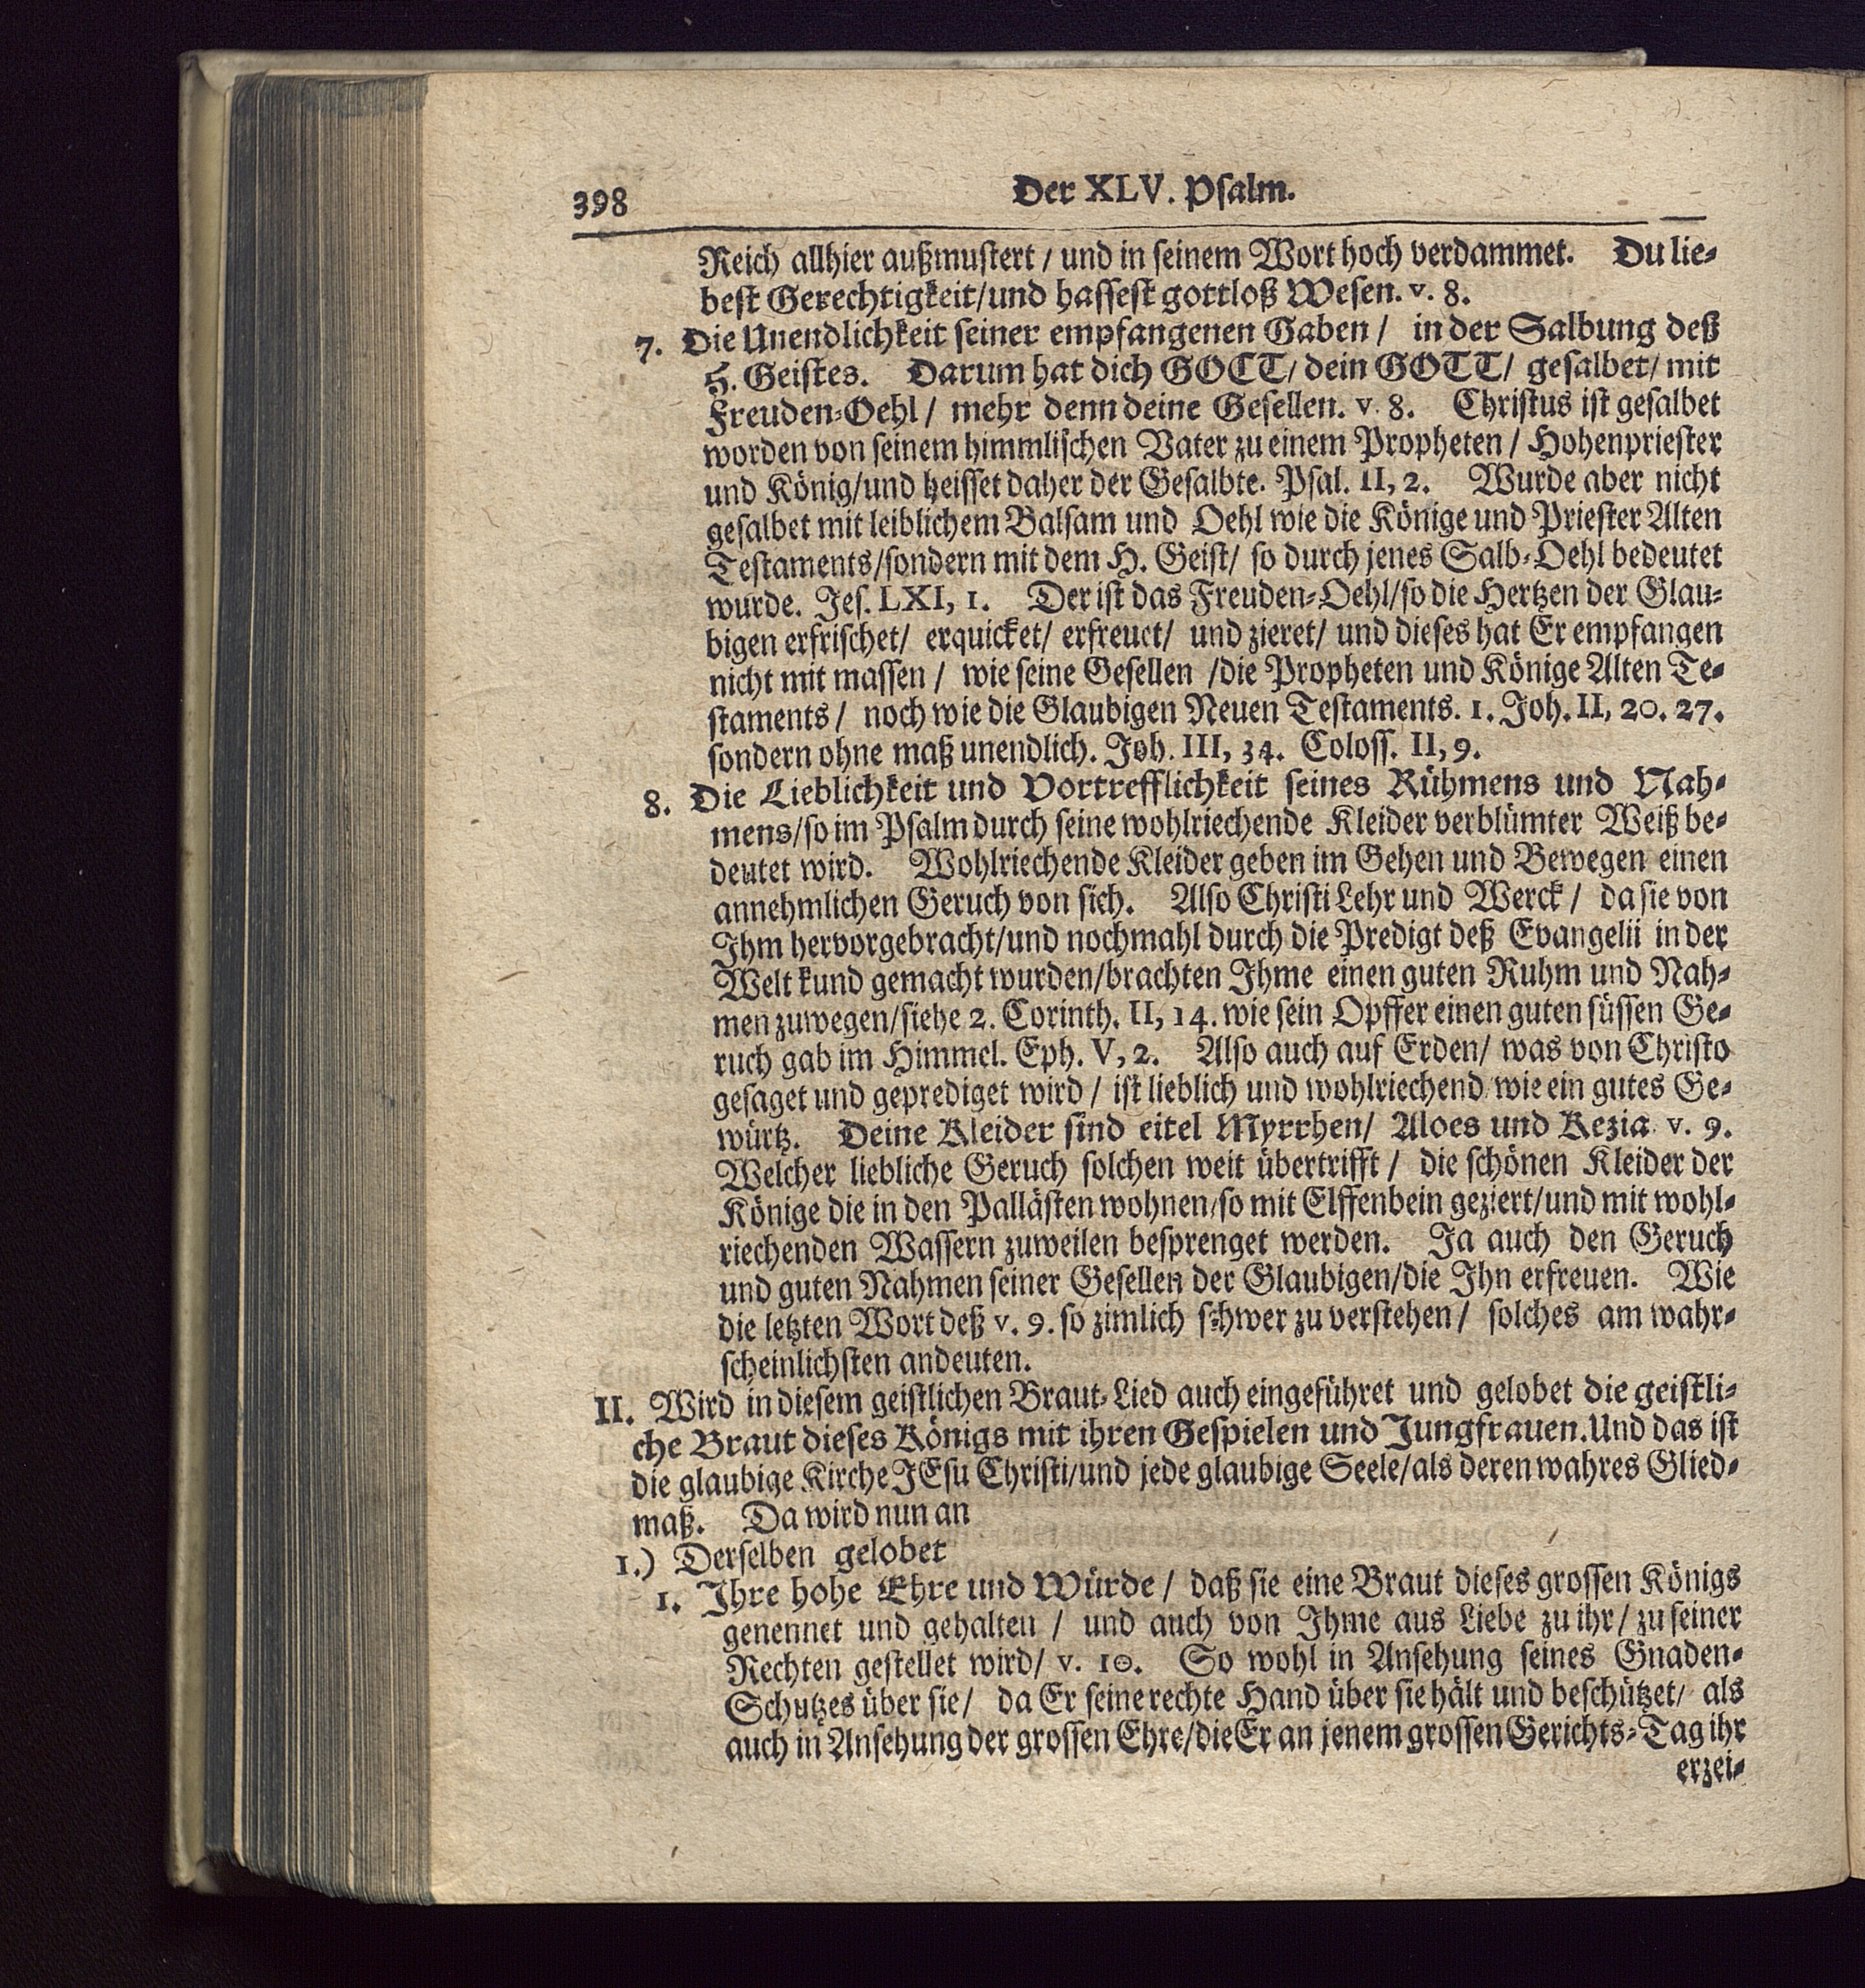 398
Der XLV. Psalm.
Reich allhier außmustert / und in seinem Wort hoch verdammet. Du lie-
best Gerechtigkeit/und hassest gottloß Wesen. v. 8.
7. Die Unendlichkeit seiner empfangenen Gaben / in der Salbung deß
H. Geistes. Darum hat dich GOTT/ dein GOTT/ gesalbet/ mit
Freuden-Oehl / mehr denn deine Gesellen. v. 8. Christus ist gesalbet
worden von seinem himmlischen Vater zu einem Propheten / Hohenpriester
und König/und heisset daher der Gesalbte. Psal. II, 2. Wurde aber nicht
gesalbet mit leiblichem Balsam und Oehl wie die Könige und Priester Alten
Testaments/sondern mit dem H. Geist/ so durch jenes Salb-Oehl bedeutet
wurde. Jes. LXI, 1. Der ist das Freuden-Oehl/so die Hertzen der Glau-
bigen erfrischet/ erquicket/ erfreuet/ und zieret/ und dieses hat Er empfangen
nicht mit massen / wie seine Gesellen /die Propheten und Könige Alten Te-
staments / noch wie die Glaubigen Neuen Testaments. 1. Joh. II, 20. 27.
sondern ohne maß unendlich. Joh. III, 34. Coloss. II, 9.
8. Die Lieblichkeit und Vortrefflichkeit seines Rühmens und Nah-
mens/so im Psalm durch seine wohlriechende Kleider verblümter Weiß be-
deutet wird. Wohlriechende Kleider geben im Gehen und Bewegen einen
annehmlichen Geruch von sich. Also Christi Lehr und Werck / da sie von
Ihm hervorgebracht/und nochmahl durch die Predigt deß Evangelii in der
Welt kund gemacht wurden/brachten Ihme einen guten Ruhm und Nah-
men zuwegen/siehe 2. Corinth. II, 14. wie sein Opffer einen guten süssen Ge-
ruch gab im Himmel. Eph. V, 2. Also auch auf Erden/ was von Christo
gesaget und geprediget wird / ist lieblich und wohlriechend wie ein gutes Ge-
würtz. Deine Kleider sind eitel Myrrhen/ Aloes und Kezia. v. 9.
Welcher liebliche Geruch solchen weit übertrifft / die schönen Kleider der
Könige die in den Pallästen wohnen/so mit Elffenbein geziert/und mit wohl-
riechenden Wassern zuweilen besprenget werden. Ja auch den Geruch
und guten Nahmen seiner Gesellen der Glaubigen/die Ihn erfreuen. Wie
die letzten Wort deß v. 9. so zimlich schwer zu verstehen / solches am wahr-
scheinlichsten andeuten.
II. Wird in diesem geistlichen Braut-Lied auch eingeführet und gelobet die geistli-
che Braut dieses Königs mit ihren Gespielen und Jungfrauen. Und das ist
die glaubige Kirche JEsu Christi/und jede glaubige Seele/als deren wahres Glied-
maß. Da wird nun an
1.) Derselben gelobet
1. Ihre hohe Ehre und Würde / daß sie eine Braut dieses grossen Königs
genennet und gehalten / und auch von Ihme aus Liebe zu ihr/ zu seiner
Rechten gestellet wird/ v. 10. So wohl in Ansehung seines Gnaden-
Schutzes über sie/ da Er seine rechte Hand über sie hält und beschützet/ als
auch in Ansehung der grossen Ehre/die Er an jenem grossen Gerichts-Tag ihr
erzei-